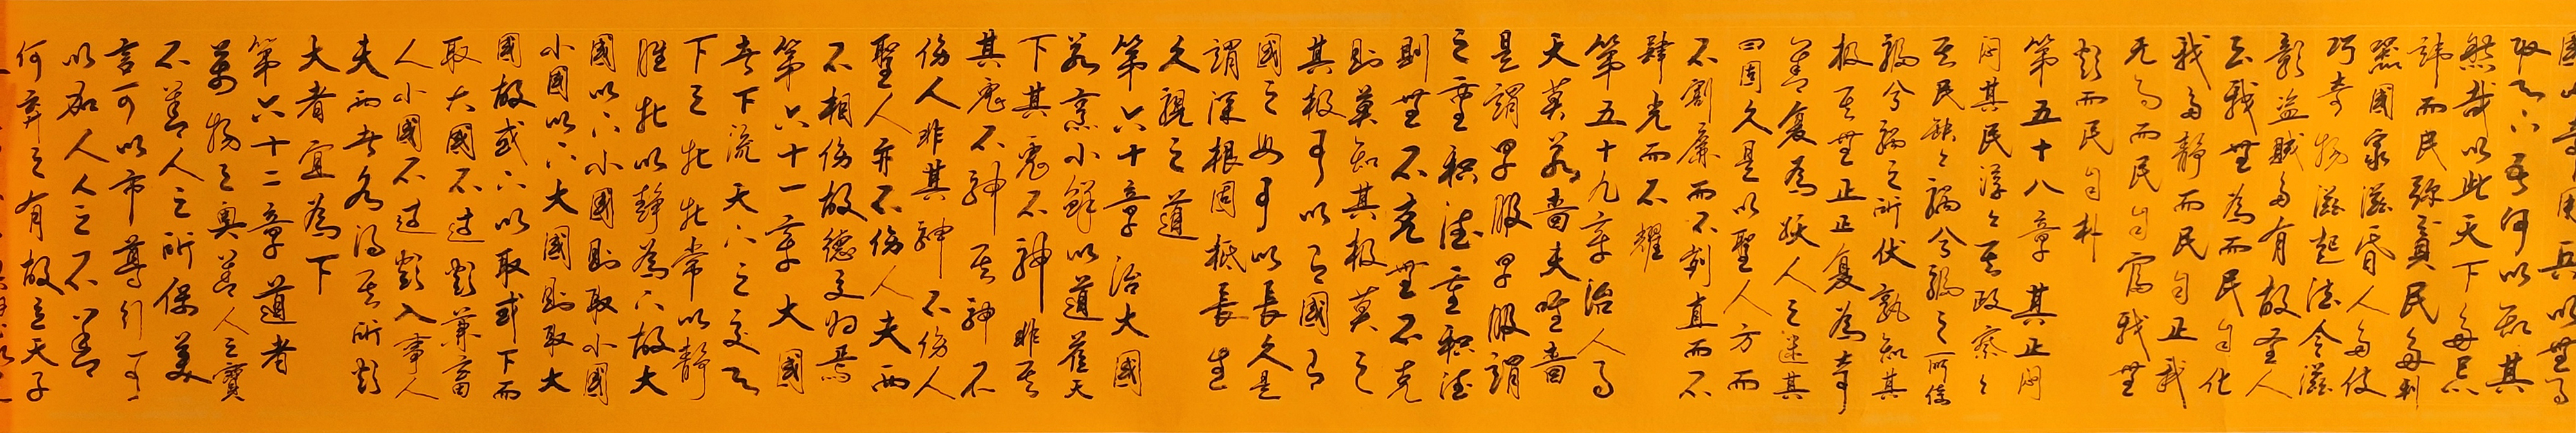 國以奇用兵以無事
取天下吾何以知其
然哉以此天下多忌
諱而民弥貧民多利
器國家滋昏人多伎
巧奇物滋起法令滋
彰盗賊多有故圣人
云我無為而民自化
我好靜而民自正我
无事而民自富我無
欲而民自朴
第五十八章 其正闷
闷其民淳々其政察々
其民缺々禍兮福之所倚
福兮禍之所伏孰知其
极其無正正复為奇
善复為妖人之迷其
日固久是以聖人方而
不割廉而不刿直而不
肆光而不耀
第五十九章治人事
天莫若嗇夫唯嗇
是謂早服早服謂
之重积德重积德
則無不克無不克
則莫知其极莫之
其极可以有國有
國之母可以長久是
謂深根固柢長生
久視之道
第六十章 治大國
若烹小鮮以道莅天
下其鬼不神非其
其鬼不神其神不
傷人非其神不傷人
聖人亦不傷人夫兩
不相傷故德交归焉
第六十一章 大國
者下流天下之交天
下之牝牝常以靜
勝牡以靜為下故大
國以下小國則取小國
小國以下大國則取大
國故或下以取或下而
取大國不过欲兼畜
人小國不过欲入事人
夫兩者各得其所欲
大者宜為下
第六十二章 道者
萬物之奥善人之寶
不善人之所保美
言可以市尊行可
以加人人之不善
何棄之有故立天子